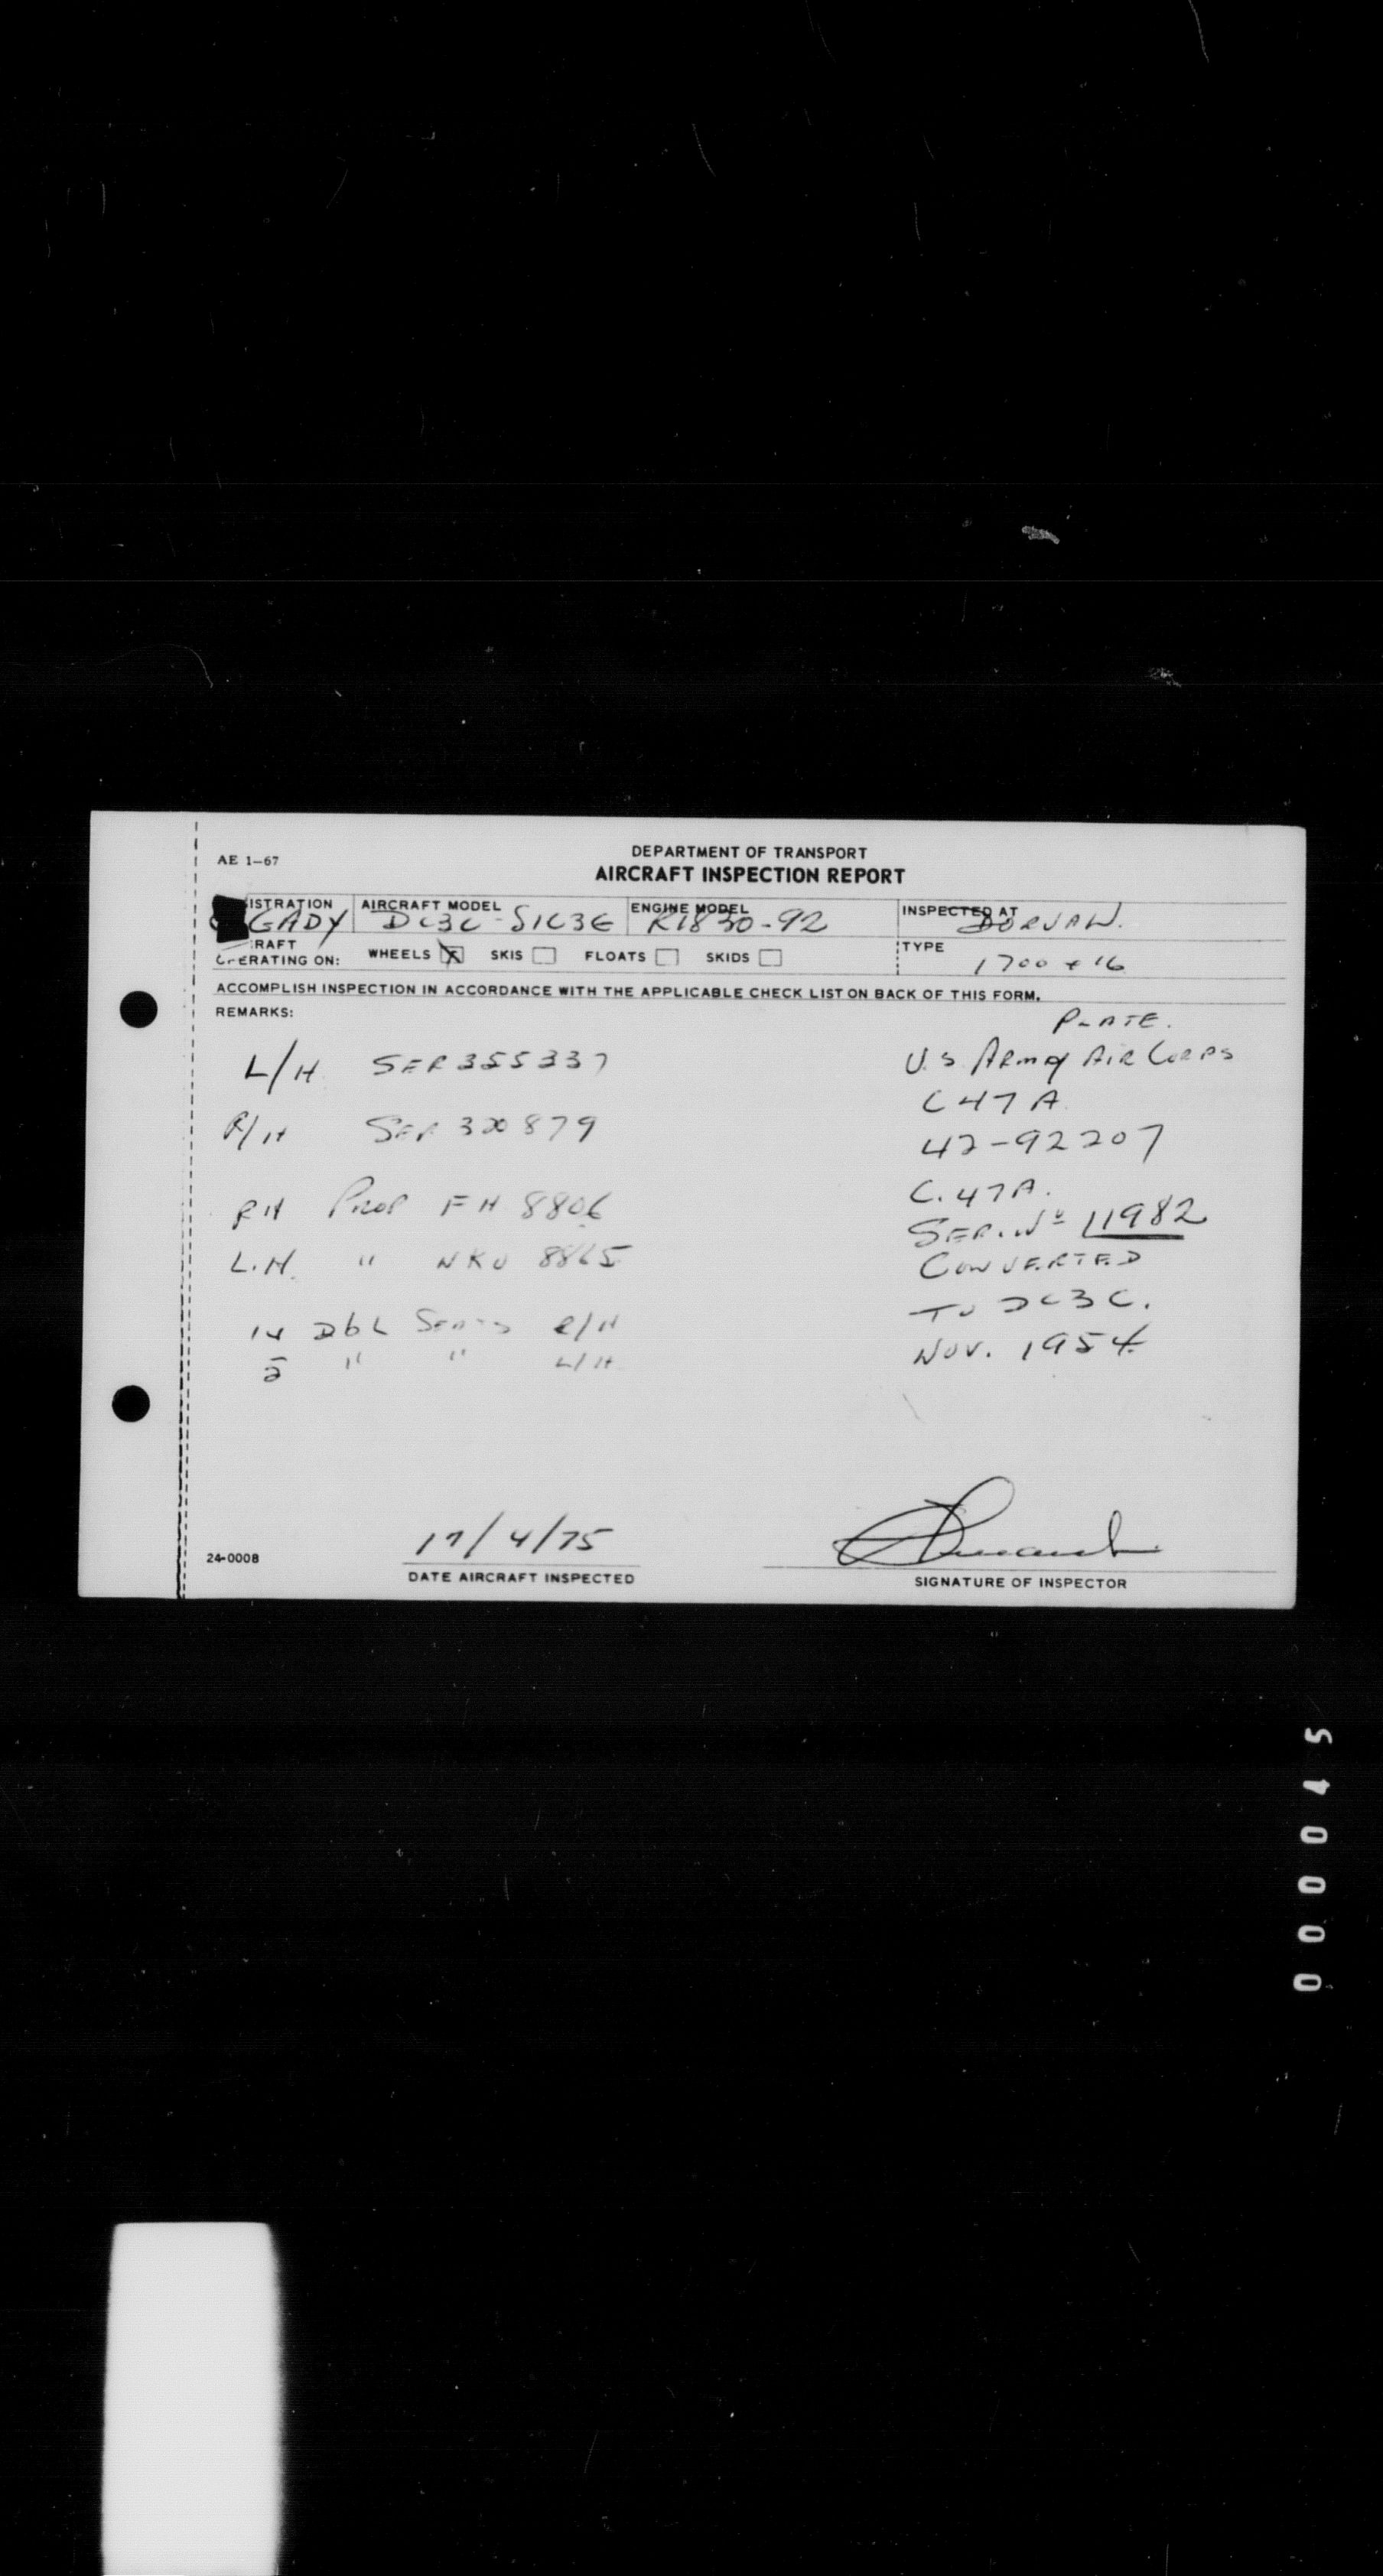 AE 1-67
DEPARTMENT OF TRANSPORT
AIRCRAFT INSPECTION REPORT
ISTRATION AIRCRAFT MODEL ENGINE MODEL INSPECTED AT
GADY DC3C-S1C3G R1830-92 DORVAL.
RAFT
OPERATING ON: WHEELS X SKIS FLOATS SKIDS TYPE
1700 + 16
ACCOMPLISH INSPECTION IN ACCORDANCE WITH THE APPLICABLE CHECK LIST ON BACK OF THIS FORM.
REMARKS:
L/H SER 355337
R/H SER 320879
RH PROP FH 8806
L.H. " NKU 8865
14 DbL SEATS R/H
" " L/H
PLATE.
U.S ARMY AIR CORPS
C47A
42-92207
C.47A.
SER. No 11982
CONVERTED
TO DC3C.
NOV. 1954.
17/4/75
24-0008
DATE AIRCRAFT INSPECTED
SIGNATURE OF INSPECTOR
000045